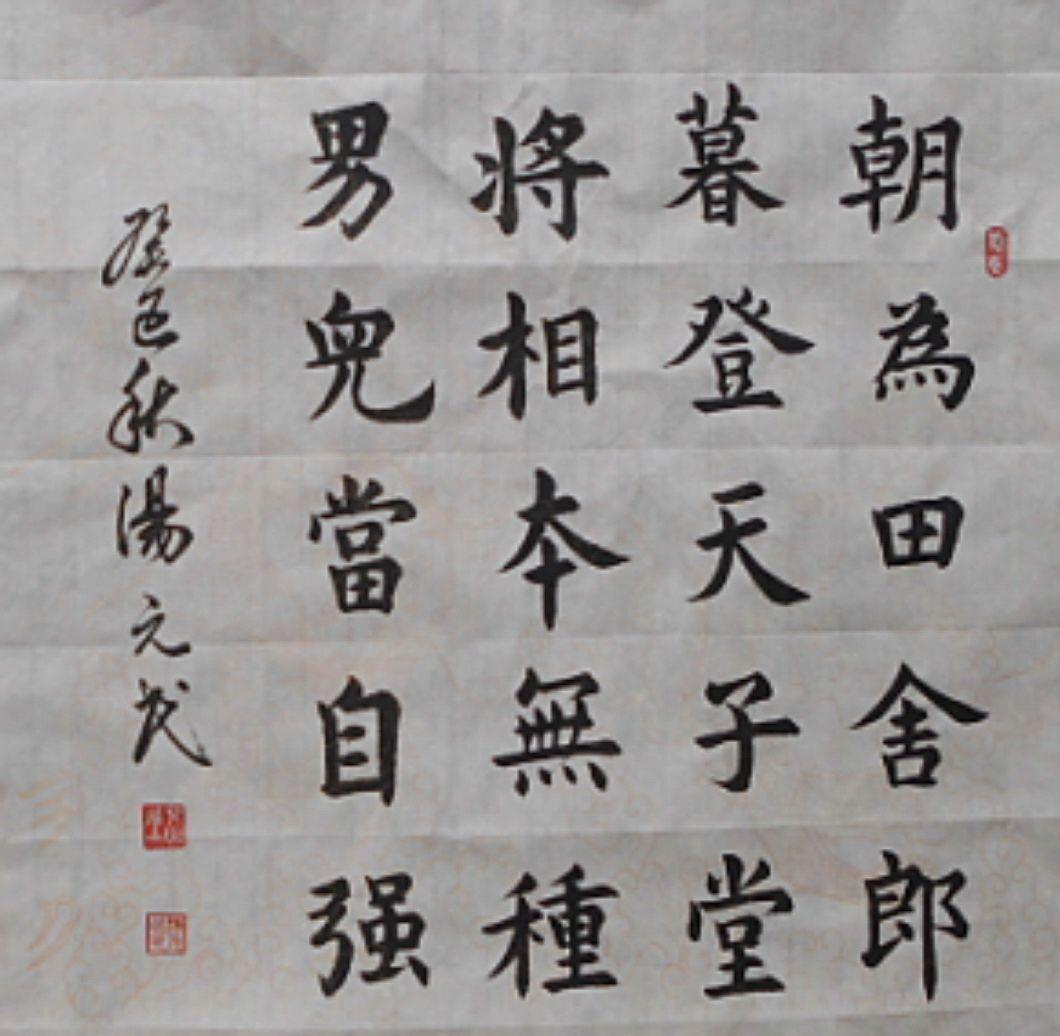 朝為田舍郎
暮登天子堂
將相本無種
男兒當自强
癸巳秋湯元茂